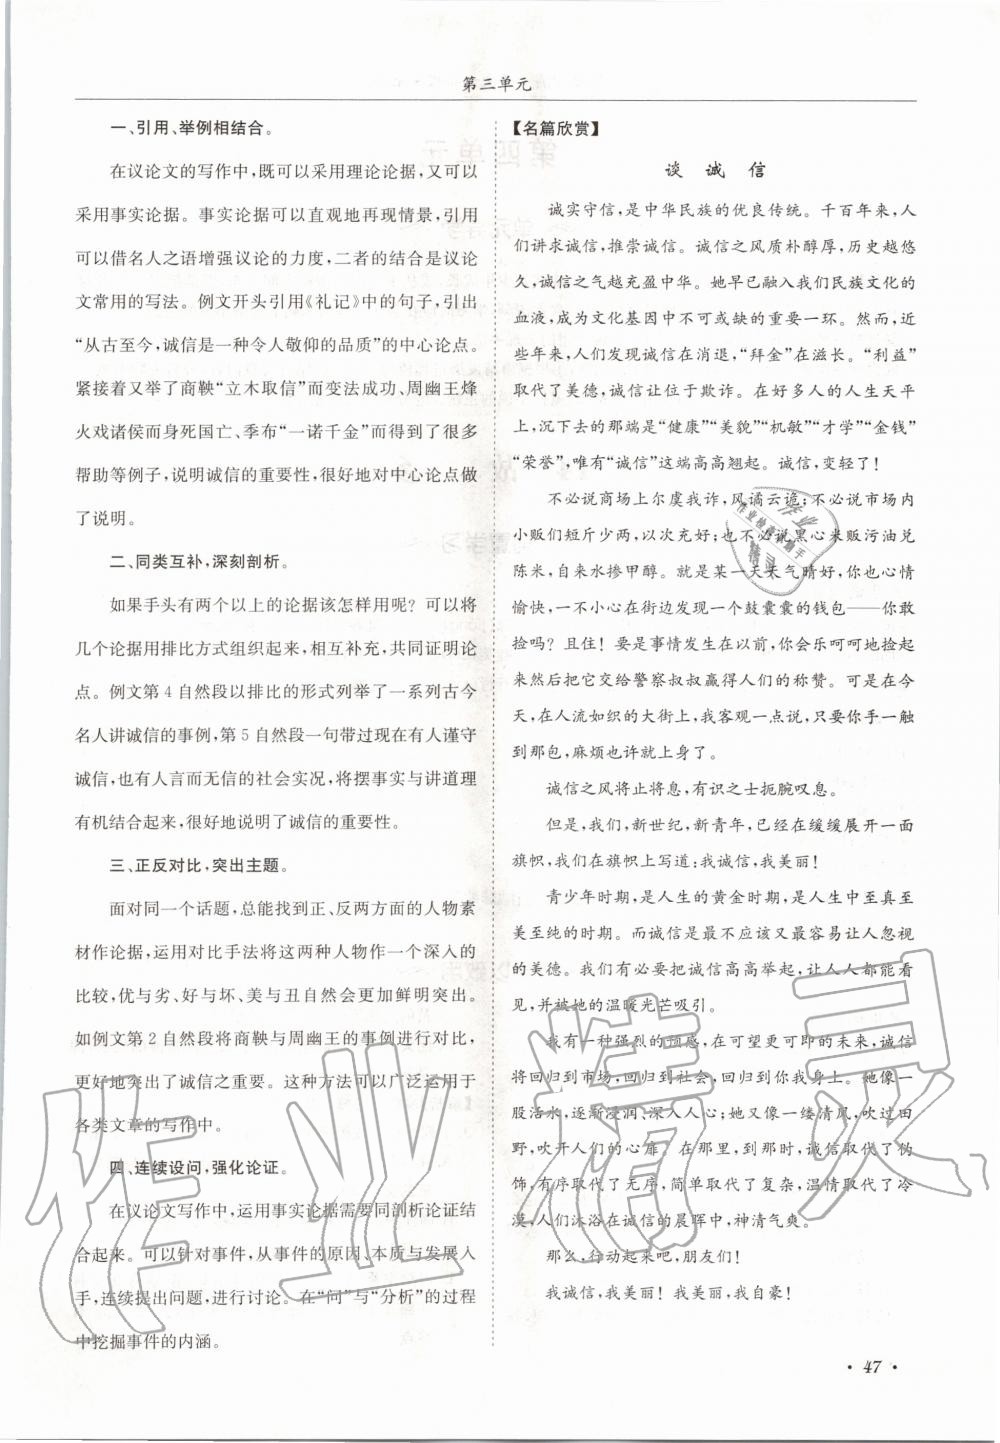 第三单元
一、引用、举例相结合。
在议论文的写作中,既可以采用理论论据,又可以
采用事实论据。事实论据可以直观地再现情景,引用
可以借名人之语增强议论的力度,二者的结合是议论
文常用的写法。例文开头引用《礼记》中的句子,引出
“从古至今,诚信是一种令人敬仰的品质”的中心论点。
紧接着又举了商鞅“立木取信”而变法成功、周幽王烽
火戏诸侯而身死国亡、季布“一诺千金”而得到了很多
帮助等例子,说明诚信的重要性,很好地对中心论点做
了说明。
二、同类互补,深刻剖析。
如果手头有两个以上的论据该怎样用呢?可以将
几个论据用排比方式组织起来,相互补充,共同证明论
点。例文第4自然段以排比的形式列举了一系列古今
名人讲诚信的事例,第5自然段一句带过现在有人谨守
诚信,也有人言而无信的社会实况,将摆事实与讲道理
有机结合起来,很好地说明了诚信的重要性。
三、正反对比,突出主题。
面对同一个话题,总能找到正、反两方面的人物素
材作论据,运用对比手法将这两种人物作一个深入的
比较,优与劣、好与坏、美与丑自然会更加鲜明突出。
如例文第2自然段将商鞅与周幽王的事例进行对比,
更好地突出了诚信之重要。这种方法可以广泛运用于
各类文章的写作中。
四、连续设问,强化论证。
在议论文写作中,运用事实论据需要同剖析论证结
合起来。可以针对事件,从事件的原因、本质与发展入
手,连续提出问题,进行讨论。在“问”与“分析”的过程
中挖掘事件的内涵。
【名篇欣赏】
谈诚信
诚实守信,是中华民族的优良传统。千百年来,人
们讲求诚信,推崇诚信。诚信之风质朴醇厚,历史越悠
久,诚信之气越充盈中华。她早已融入我们民族文化的
血液,成为文化基因中不可或缺的重要一环。然而,近
些年来,人们发现诚信在消退,“拜金”在滋长。“利益”
取代了美德,诚信让位于欺诈。在好多人的人生天平
上,沉下去的那端是“健康”“美貌”“机敏”“才学”“金钱”
“荣誉”,唯有“诚信”这端高高翘起。诚信,变轻了!
不必说商场上尔虞我诈,风谲云诡;不必说市场内
小贩们短斤少两,以次充好;也不必说黑心米贩污油兑
陈米,自来水掺甲醇。就是某一天天气晴好,你也心情
愉快,一不小心在街边发现一个鼓囊囊的钱包——你敢
捡吗?且住!要是事情发生在以前,你会乐呵呵地捡起
来然后把它交给警察叔叔赢得人们的称赞。可是在今
天,在人流如织的大街上,我客观一点说,只要你手一触
到那包,麻烦也许就上身了。
诚信之风将止将息,有识之士扼腕叹息。
但是,我们,新世纪,新青年,已经在缓缓展开一面
旗帜,我们在旗帜上写道:我诚信,我美丽!
青少年时期,是人生的黄金时期,是人生中至真至
美至纯的时期。而诚信是最不应该又最容易让人忽视
的美德。我们有必要把诚信高高举起,让人人都能看
见,并被她的温暖光芒吸引。
我有一种强烈的预感,在可望更可即的未来,诚信
将回归到市场,回归到社会,回归到你我身上。她像一
股活水,逐渐浸润、深入人心;她又像一缕清风,吹过田
野,吹开人们的心扉。在那里,到那时,诚信取代了伪
饰,有序取代了无序,简单取代了复杂,温情取代了冷
漠,人们沐浴在诚信的晨晖中,神清气爽。
那么,行动起来吧,朋友们!
我诚信,我美丽!我美丽,我自豪!
· 47 ·
作业精灵